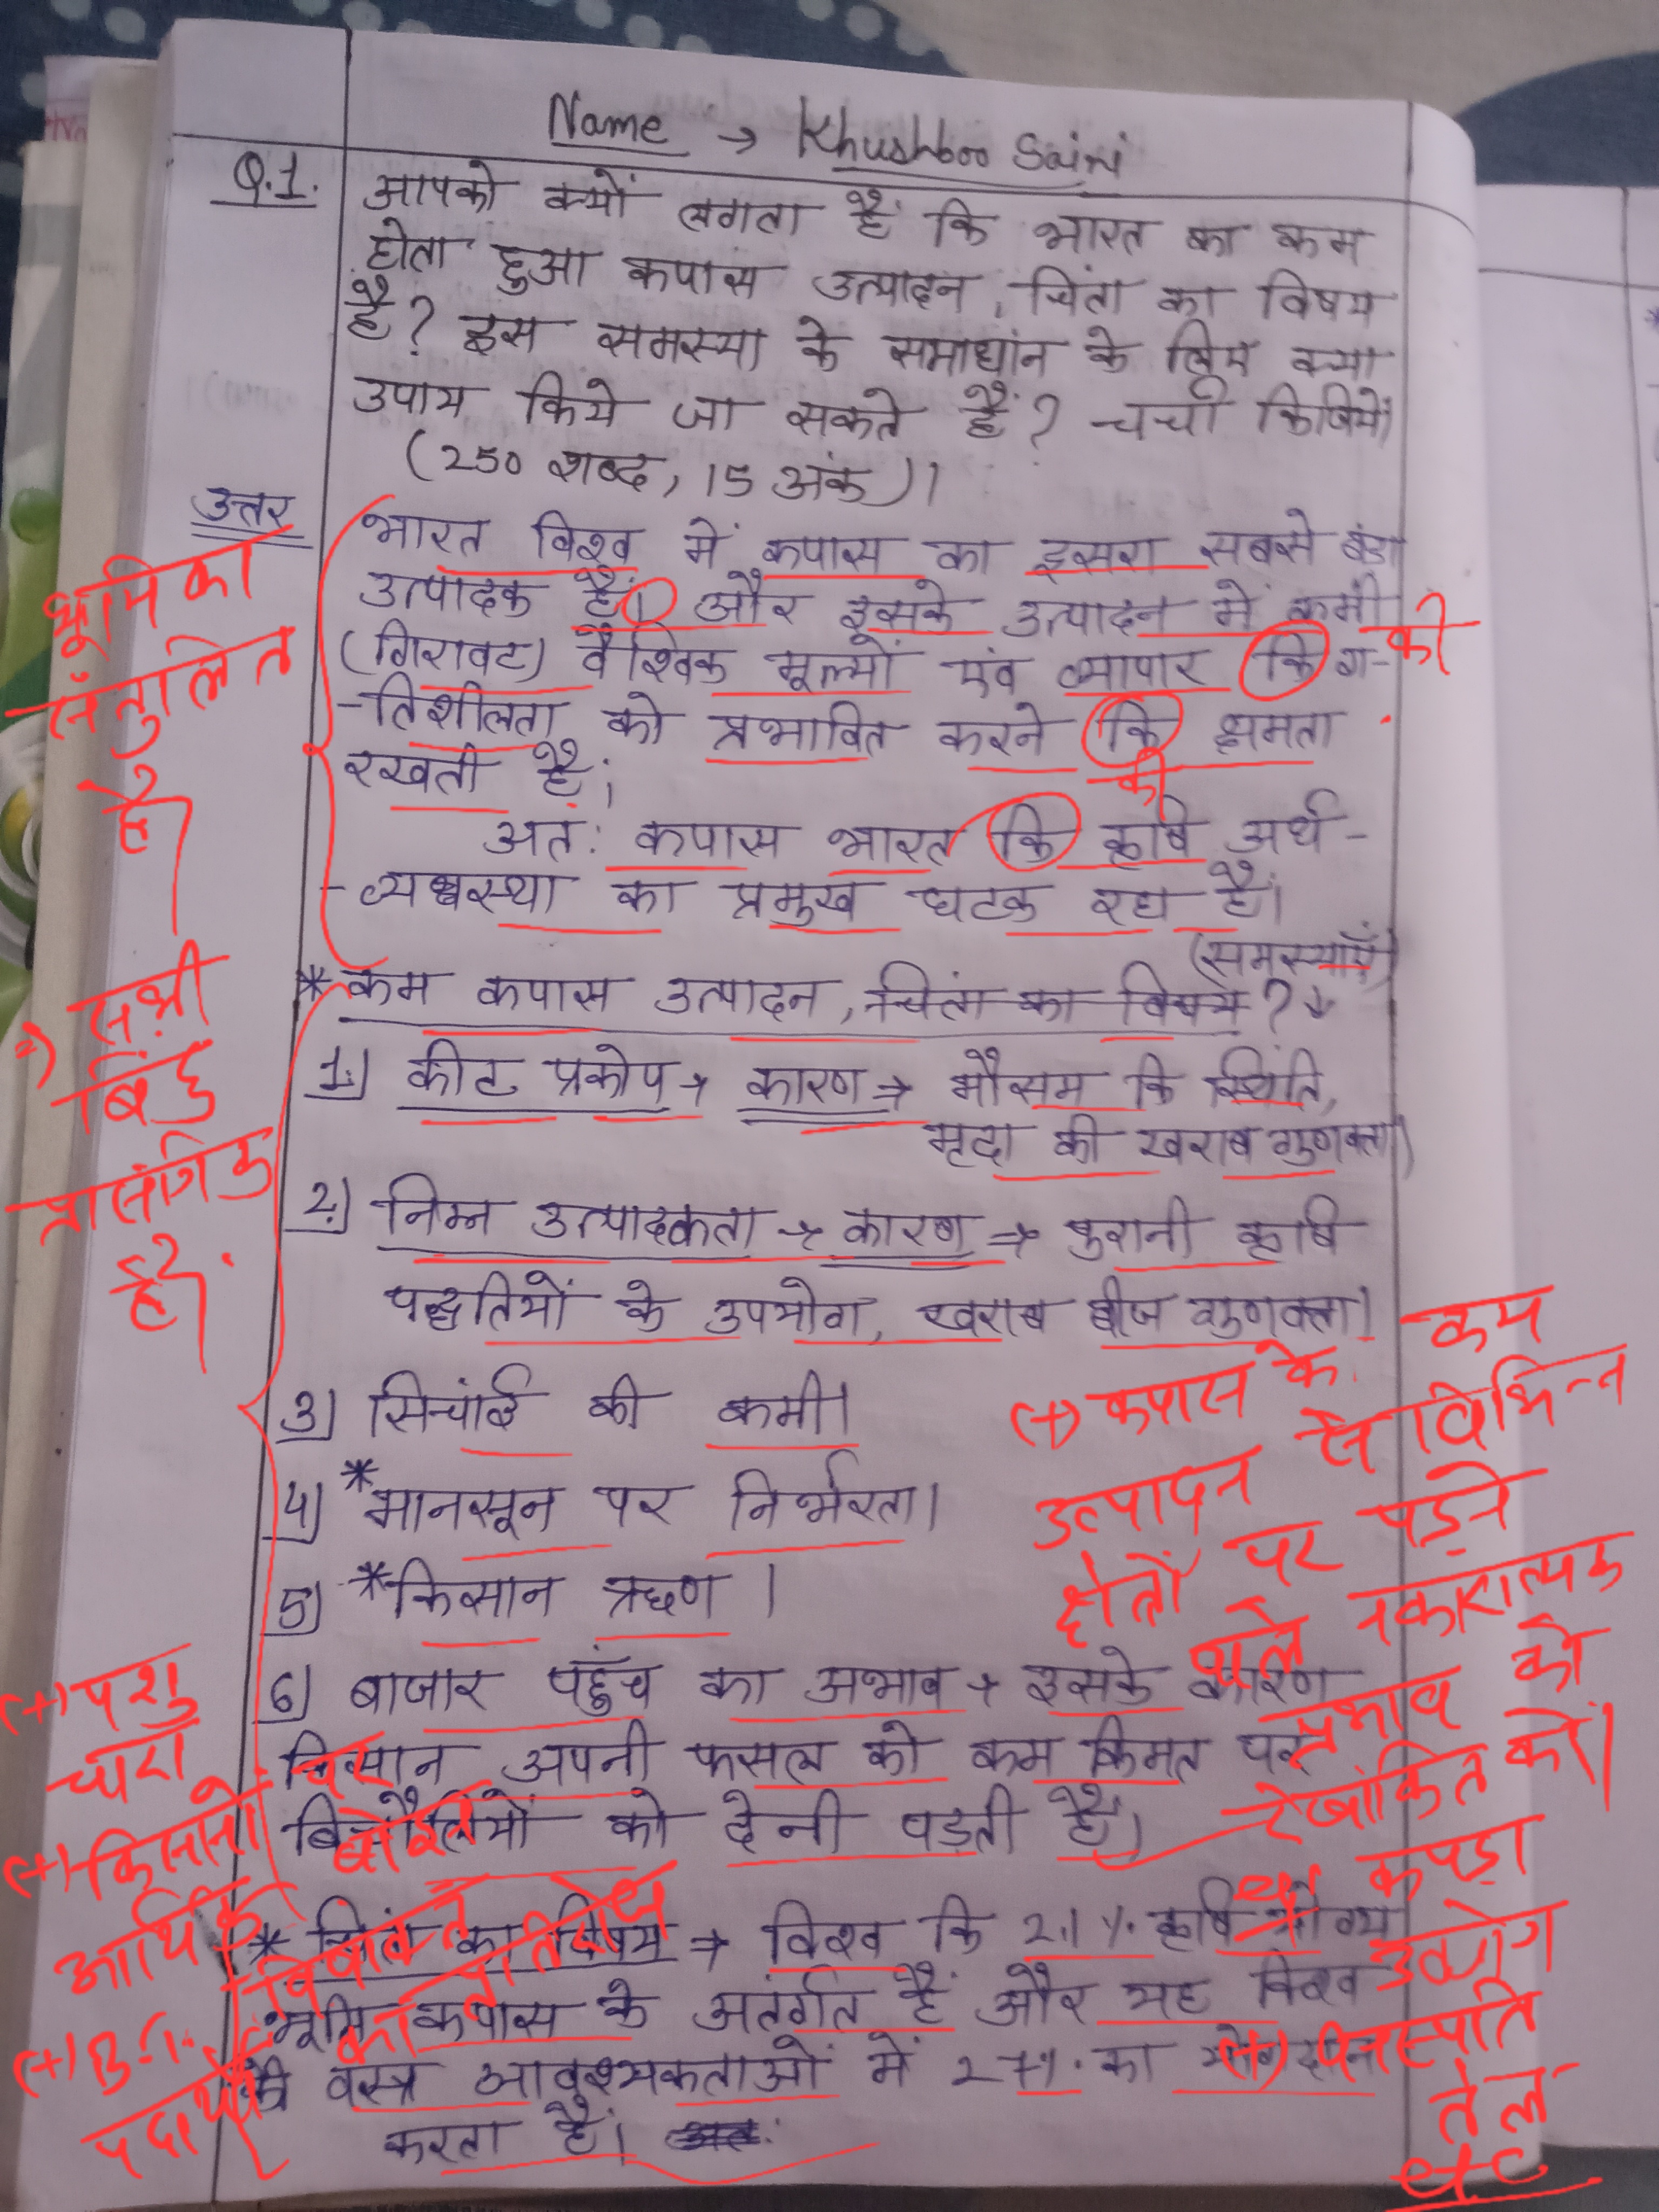 Name → Khushboo Saini
Q.1. आपको क्यों लगता है कि भारत का कम
होता हुआ कपास उत्पादन, चिंता का विषय
है? इस समस्या के समाधान के लिए क्या
उपाय किये जा सकते हैं? चर्चा किजिये।
(250 शब्द, 15 अंक)।
उत्तर भारत विश्व में कपास का दूसरा सबसे बड़ा
उत्पादक है। और इसके उत्पादन में कमी
(गिरावट) वैश्विक मूल्यों एवं व्यापार कि ग-
-तिशीलता को प्रभावित करने कि क्षमता
रखती है।
अतः कपास भारत कि कृषि अर्थ-
-व्यवस्था का प्रमुख घटक रहा है।
(समस्याएँ)
* कम कपास उत्पादन, चिंता का विषय? ↓
1.) कीट प्रकोप → कारण → मौसम कि स्थिति,
मृदा की खराब गुणवत्ता।
2.) निम्न उत्पादकता → कारण → पुरानी कृषि
पद्धतियों के उपयोग, खराब बीज गुणवत्ता।
3) सिचांई की कमी।
4) *मानसून पर निर्भरता।
5) *किसान ऋण।
6) बाजार पहुँच का अभाव → इसके कारण
किसान अपनी फसल को कम किमत पर
को देनी पड़ती है।
* चिंता का विषय → विश्व कि 2.1% कृषि योग्य
भूमि कपास के अतंर्गत है और यह विश्व
कि वस्त्र आवश्यकताओं में 27% का योगदान
करता है।
भूमिका
संतुलित
है।
की
की
⇒ सभी
बिंदु
प्रासंगिक
है।
(+) कपास के कम
उत्पादन से विभिन्न
क्षेत्रों पर पड़ने
वाले नकारात्मक
प्रभाव को
रेखांकित करें।
(+) पशु
चारा
(+) किसानों
आर्थिक
(+) B.T.
कपड़ा
उद्योग
(+) वनस्पति
तेल
etc